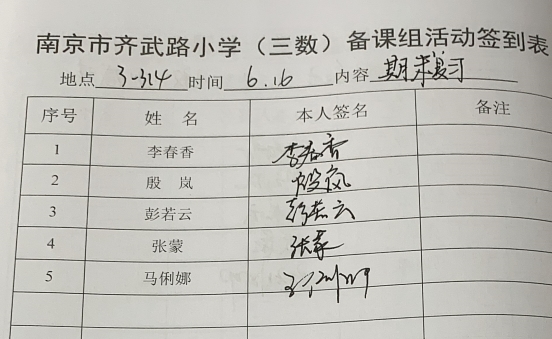 南京市齐武路小学（三数）备课组活动签到表
地点 3-314 时间 6.16 内容 期末复习
序号 姓 名 本人签名 备注
1 李春香 李春香
2 殷 岚 殷岚
3 彭若云 彭若云
4 张蒙 张蒙
5 马俐娜